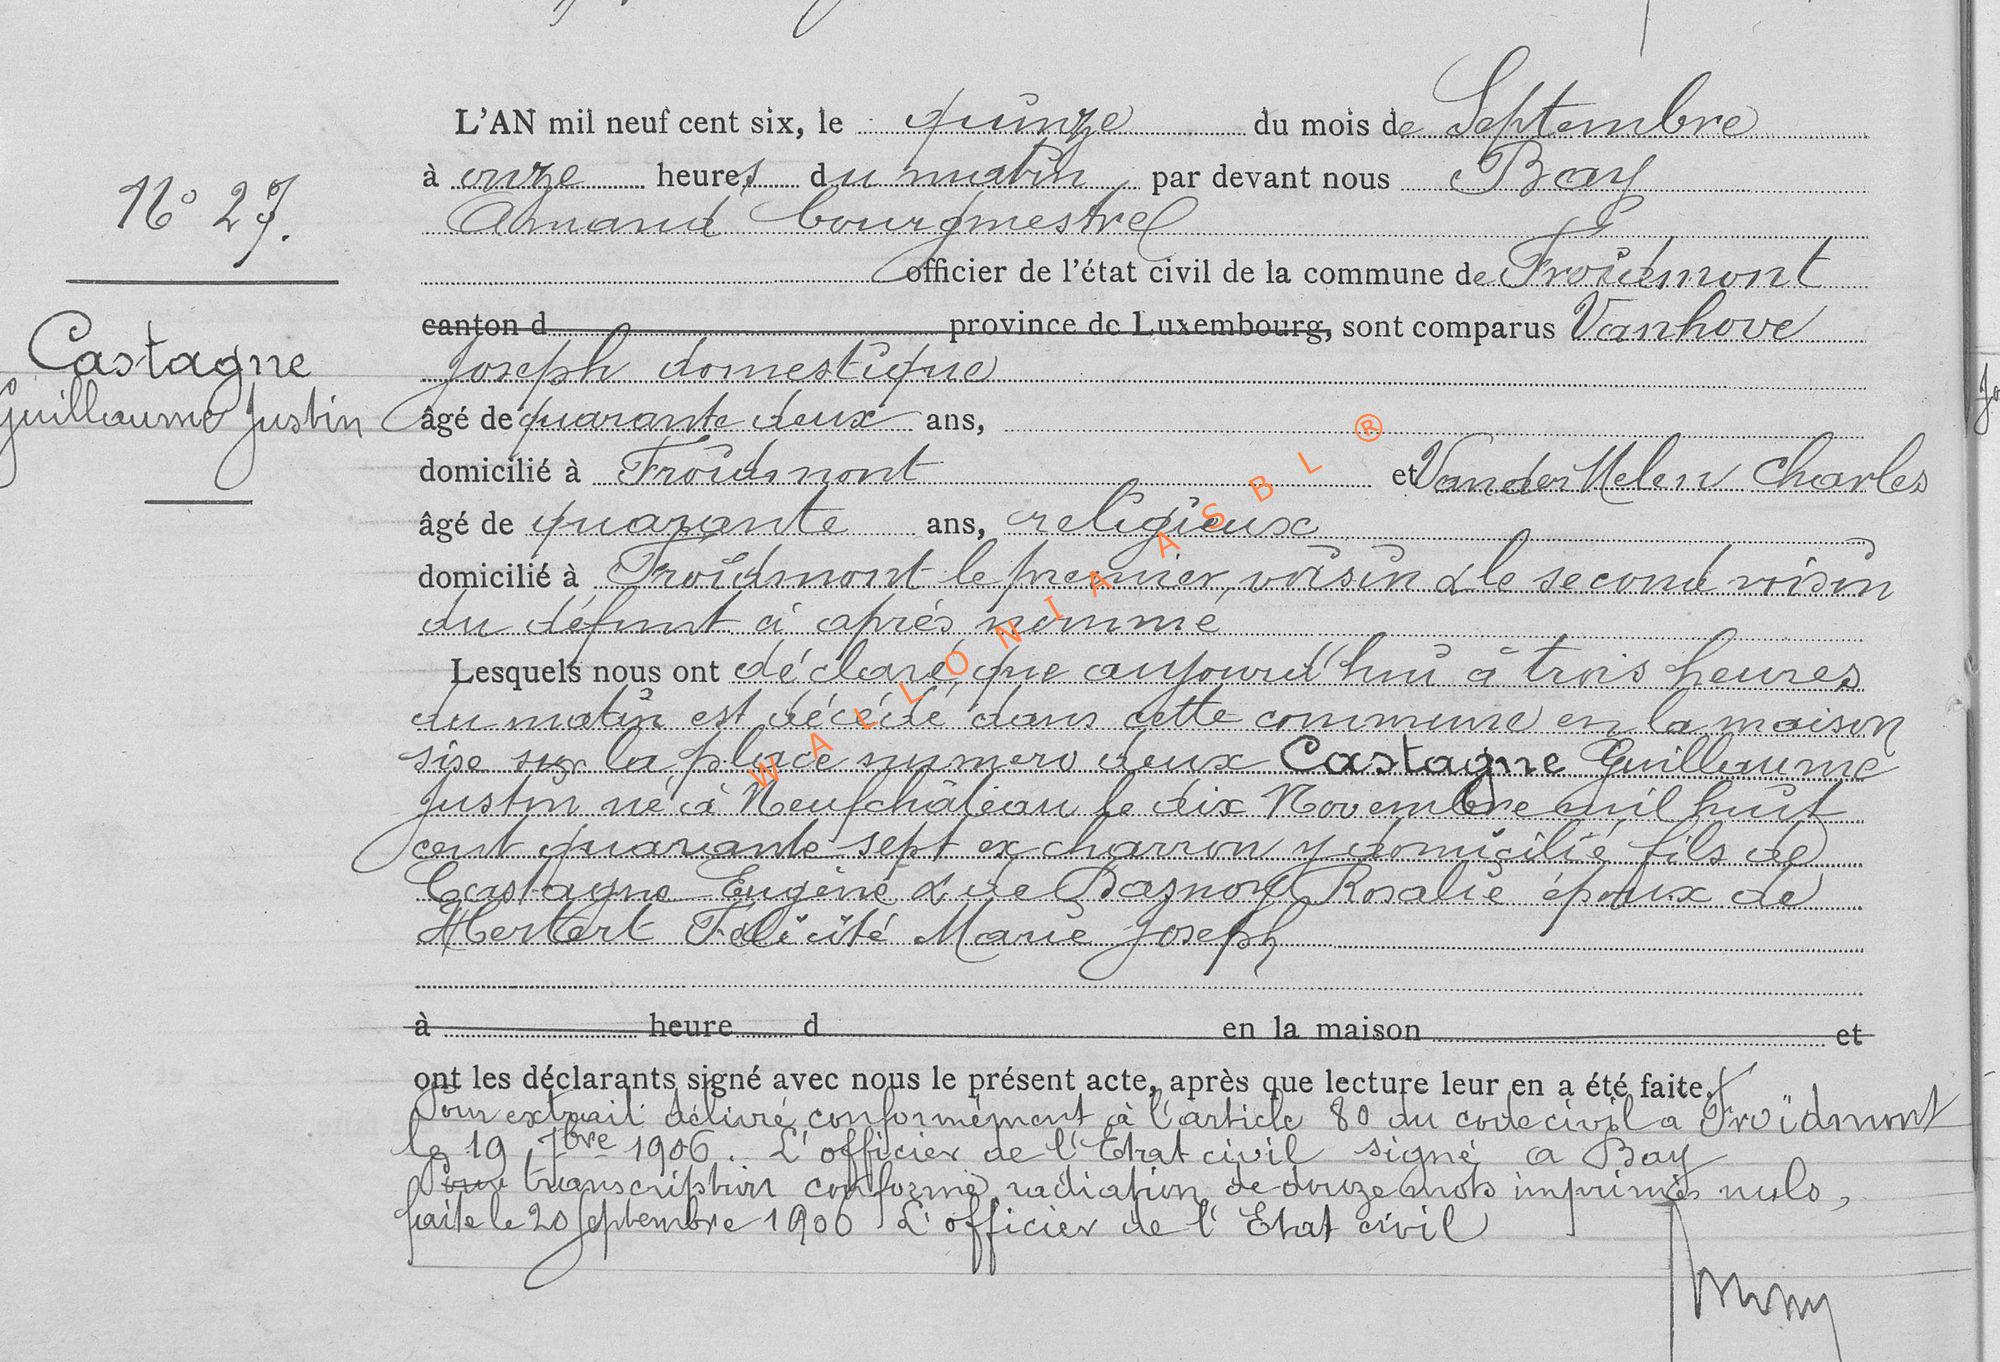 L'AN mil neuf cent six, le quinze du mois de Septembre
à onze heures du matin, par devant nous Bay
Armand bourgmestre
officier de l'état civil de la commune de Froidmont
canton d province de Luxembourg, sont comparus Vanhove
Joseph domestique
âgé de quarante deux ans,
domicilié à Froidmont et Vander Helen Charles
âgé de quarante ans, religieux
domicilié à Froidmont le premier voisin & le second voisin
du défunt ci après nommé
Lesquels nous ont déclaré que aujourd'hui à trois heures
du matin est décédé dans cette commune en la maison
sise sur la place numero deux Castagne Guillaume
Justin né à Neufchâteau le dix Novembre mil huit
cent quarante sept ex charron y domicilié fils de
Castagne Eugène & de Rosalie époux de
Herbert Félicité Marie Joseph
à heure d en la maison et
ont les déclarants signé avec nous le présent acte, après que lecture leur en a été faite.
Pour extrait délivré conformément à l'article 80 du code civil a Froidmont
le 19 7bre 1906. L'officier de l'Etat civil signé A Bay
Pour transcription conforme, radiation de douze mots imprimés nuls,
faite le 20 septembre 1906 L'officier de l'Etat civil
N° 27.
Castagne
Guillaume Justin
WALLONIA ASBL ®